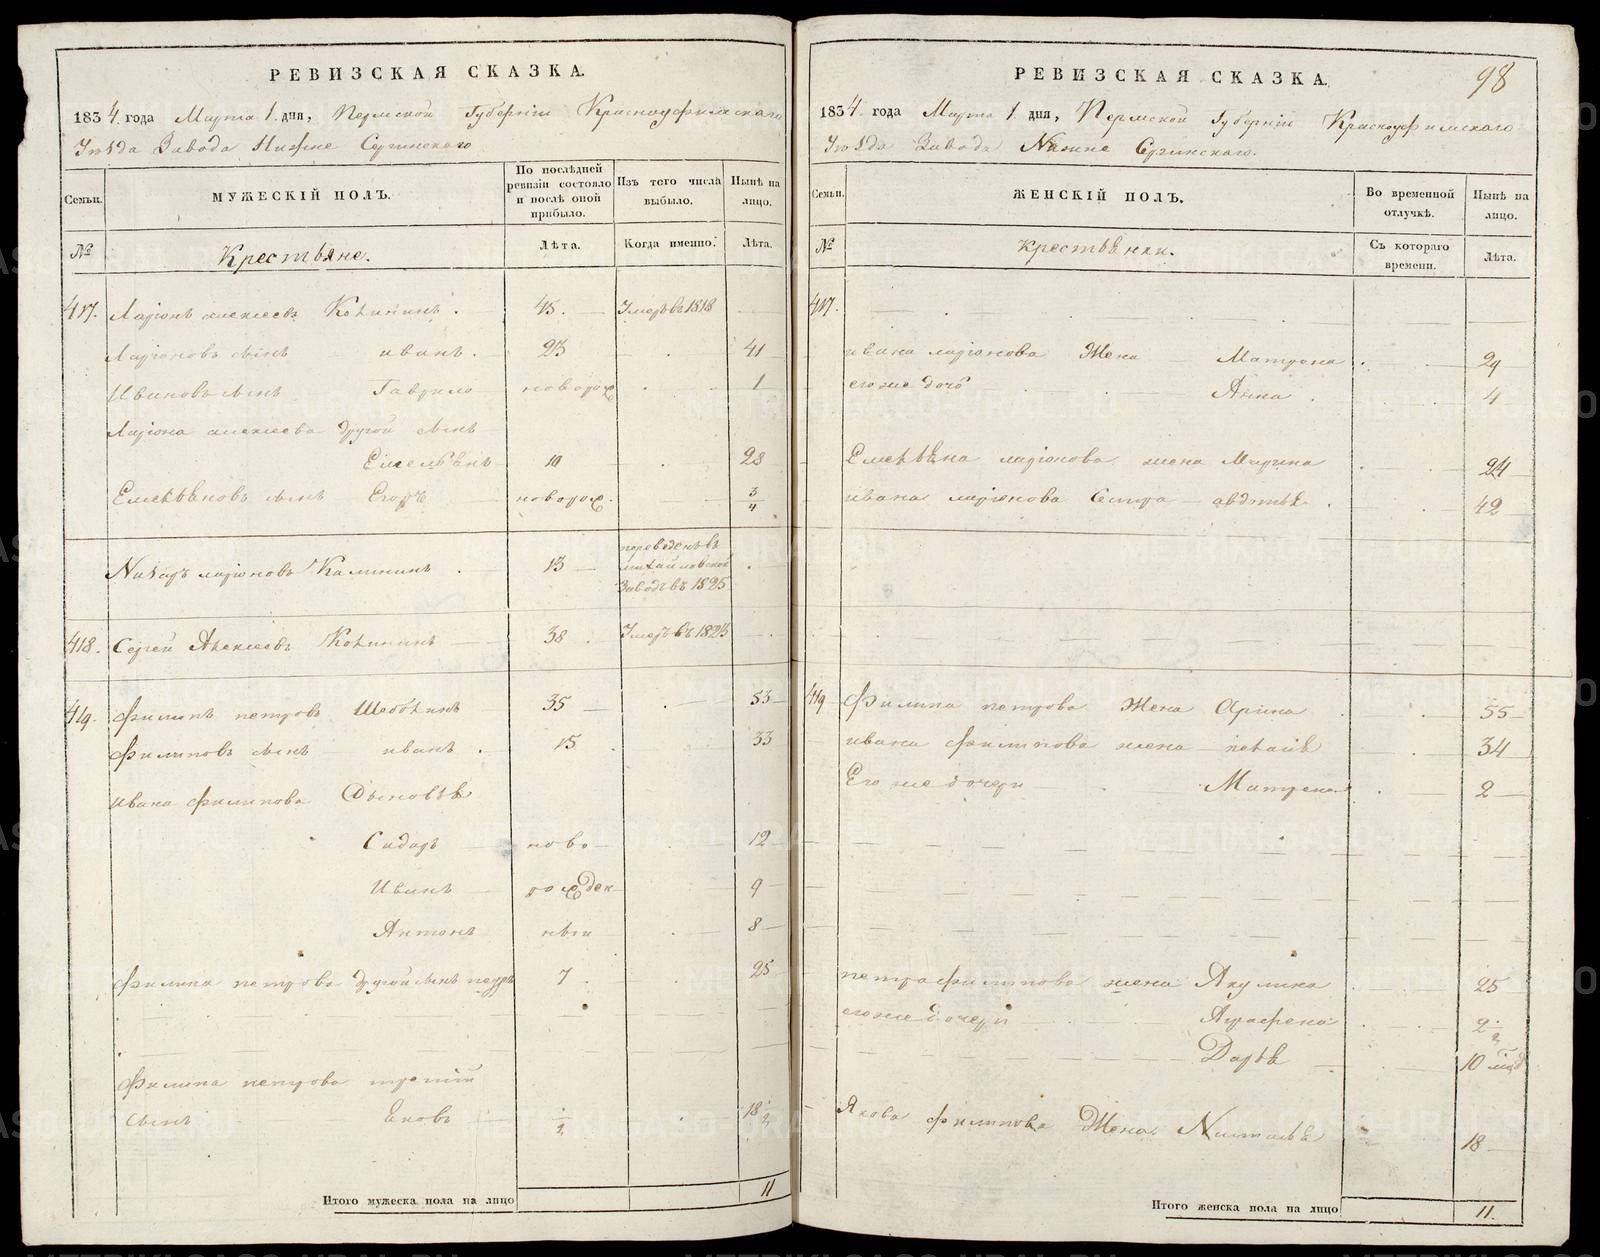 РЕВИЗСКАЯ СКАЗКА.
1834 года Марта 1 дня, Пермской Губернiи Красноуфимскаго
Уѣзда Завода Нижне Сергинскаго
Семьи. МУЖЕСКIЙ ПОЛЪ. По послѣдней ревизiи состояло и послѣ оной прибыло. Изъ того числа выбыло. Нынѣ на лицо.
№ Крестьяне. Лѣта. Когда именно. Лѣта.
417. Ларiонъ алексеевъ 45. Умеръ въ 1818
Ларiоновъ сынъ иванъ. 23 41
Ивановъ сынъ Гаврило новорож 1
Ларiона алексеева другой сынъ
Емельянъ 10 28
Емельяновъ сынъ Егоръ новорож. 3/4
ларiоновъ Калининъ 13 переведенъ въ михайловской Заводъ въ 1825
418. Сергей Алексеевъ 38 Умеръ въ 1823
419. Филипъ петровъ 35 53
Филиповъ сынъ иванъ. 15 33
ивана филипова Сыновья
Сидоръ ново 12
Иванъ рожден 9
Антонъ ныи 8
Филипа петрова другой сынъ петръ 7 25
Филипа петрова третiй
сынъ Ековъ 1/2 18 1/2
Итого мужеска пола на лицо 11
РЕВИЗСКАЯ СКАЗКА.
98
1834 года Марта 1 дня, Пермской Губернiи Красноуфимскаго
Уѣзда Завода Нижне Сергинскаго.
Семьи. ЖЕНСКIЙ ПОЛЪ. Во временной отлучкѣ. Нынѣ на лицо.
№ Крестьянки. Съ котораго времени. Лѣта.
417.
ивана ларiонова Жена Матрена 29
его же дочь Анна 4
Емельяна ларiонова жена Марина 24
ивана ларiонова Сестра авдотья 42
419 Филипа петрова Жена Арина 55
ивана филипова жена 34
Его же дочери Матрена 2
петра филипова жена Акулина 25
его же дочери Аграфена 2 1/2
Дарья 10
Якова филипова Жена Наталья 18
Итого женска пола на лицо 11.